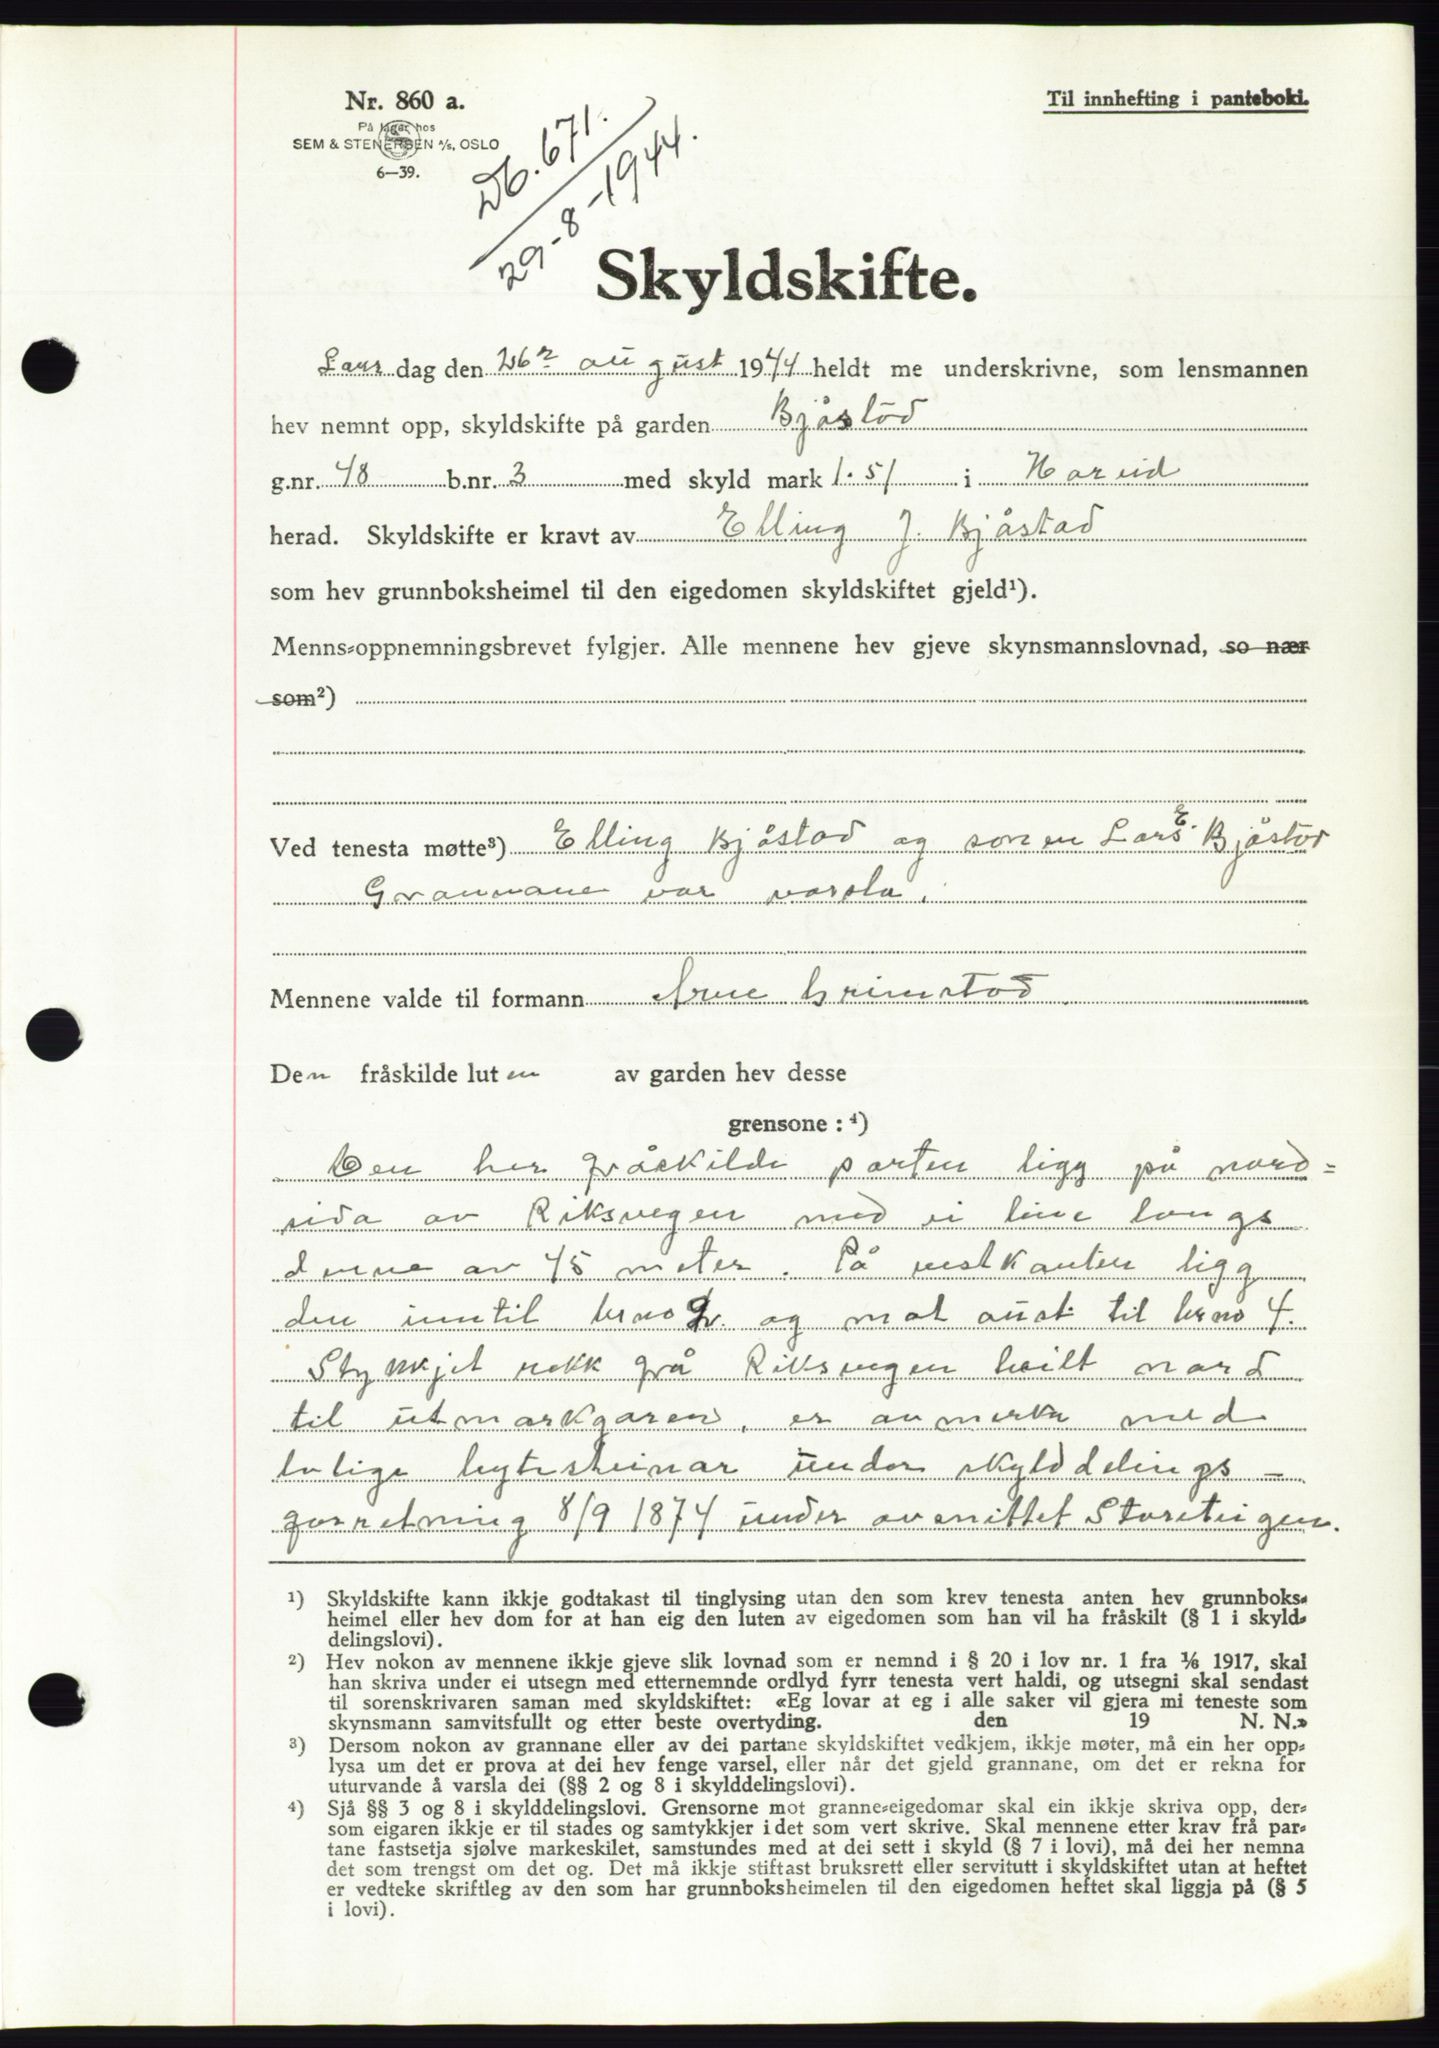 Nr. 860 a.
Til innhefting i panteboki.
På lager hos
SEM & STENERSEN A/S, OSLO
6—39.
Db. 671.
29-8-1944.
Skyldskifte.
Laur dag den 26 august 1944 heldt me underskrivne, som lensmannen
hev nemnt opp, skyldskifte på garden Bjåstad
g.nr. 48 b.nr. 3 med skyld mark 1.51 i Hareid
herad. Skyldskifte er kravt av Elling J. Bjåstad
som hev grunnboksheimel til den eigedomen skyldskiftet gjeld¹).
Menns-oppnemningsbrevet fylgjer. Alle mennene hev gjeve skynsmannslovnad, so nær
som²)
Ved tenesta møtte³) Elling Bjåstad og sonen Lars E. Bjåstad
Grannane var varsla.
Mennene valde til formann Arne Grimstad.
Den fråskilde luten av garden hev desse
grensone : ⁴)
Den her fråskilde parten ligg på nord=
sida av Riksvegen med ei line langs
denne av 45 meter. På vestkanten ligg
den inntil brno 2. og mot aust til brno 4.
Stykkjet rekk frå Riksvegen heilt nord
til utmarkgaren, er avmerka med
lovlige bytesteinar under skylddelings-
forretning 8/9 1874 under avsnittet Storeteigen.
¹) Skyldskifte kann ikkje godtakast til tinglysing utan den som krev tenesta anten hev grunnboks-
heimel eller hev dom for at han eig den luten av eigedomen som han vil ha fråskilt (§ 1 i skyld-
delingslovi).
²) Hev nokon av mennene ikkje gjeve slik lovnad som er nemnd i § 20 i lov nr. 1 fra 1/6 1917, skal
han skriva under ei utsegn med etternemnde ordlyd fyrr tenesta vert haldi, og utsegni skal sendast
til sorenskrivaren saman med skyldskiftet: «Eg lovar at eg i alle saker vil gjera mi teneste som
skynsmann samvitsfullt og etter beste overtyding. den 19 N. N.»
³) Dersom nokon av grannane eller av dei partane skyldskiftet vedkjem, ikkje møter, må ein her opp-
lysa um det er prova at dei hev fenge varsel, eller når det gjeld grannane, om det er rekna for
uturvande å varsla dei (§§ 2 og 8 i skylddelingslovi).
⁴) Sjå §§ 3 og 8 i skylddelingslovi. Grensorne mot granne-eigedomar skal ein ikkje skriva opp, der-
som eigaren ikkje er til stades og samtykkjer i det som vert skrive. Skal mennene etter krav frå par-
tane fastsetja sjølve markeskilet, samstundes med at dei sett i skyld (§ 7 i lovi), må dei her nemna
det som trengst om det og. Det må ikkje stiftast bruksrett eller servitutt i skyldskiftet utan at heftet
er vedteke skriftleg av den som har grunnboksheimelen til den eigedomen heftet skal liggja på (§ 5
i lovi).